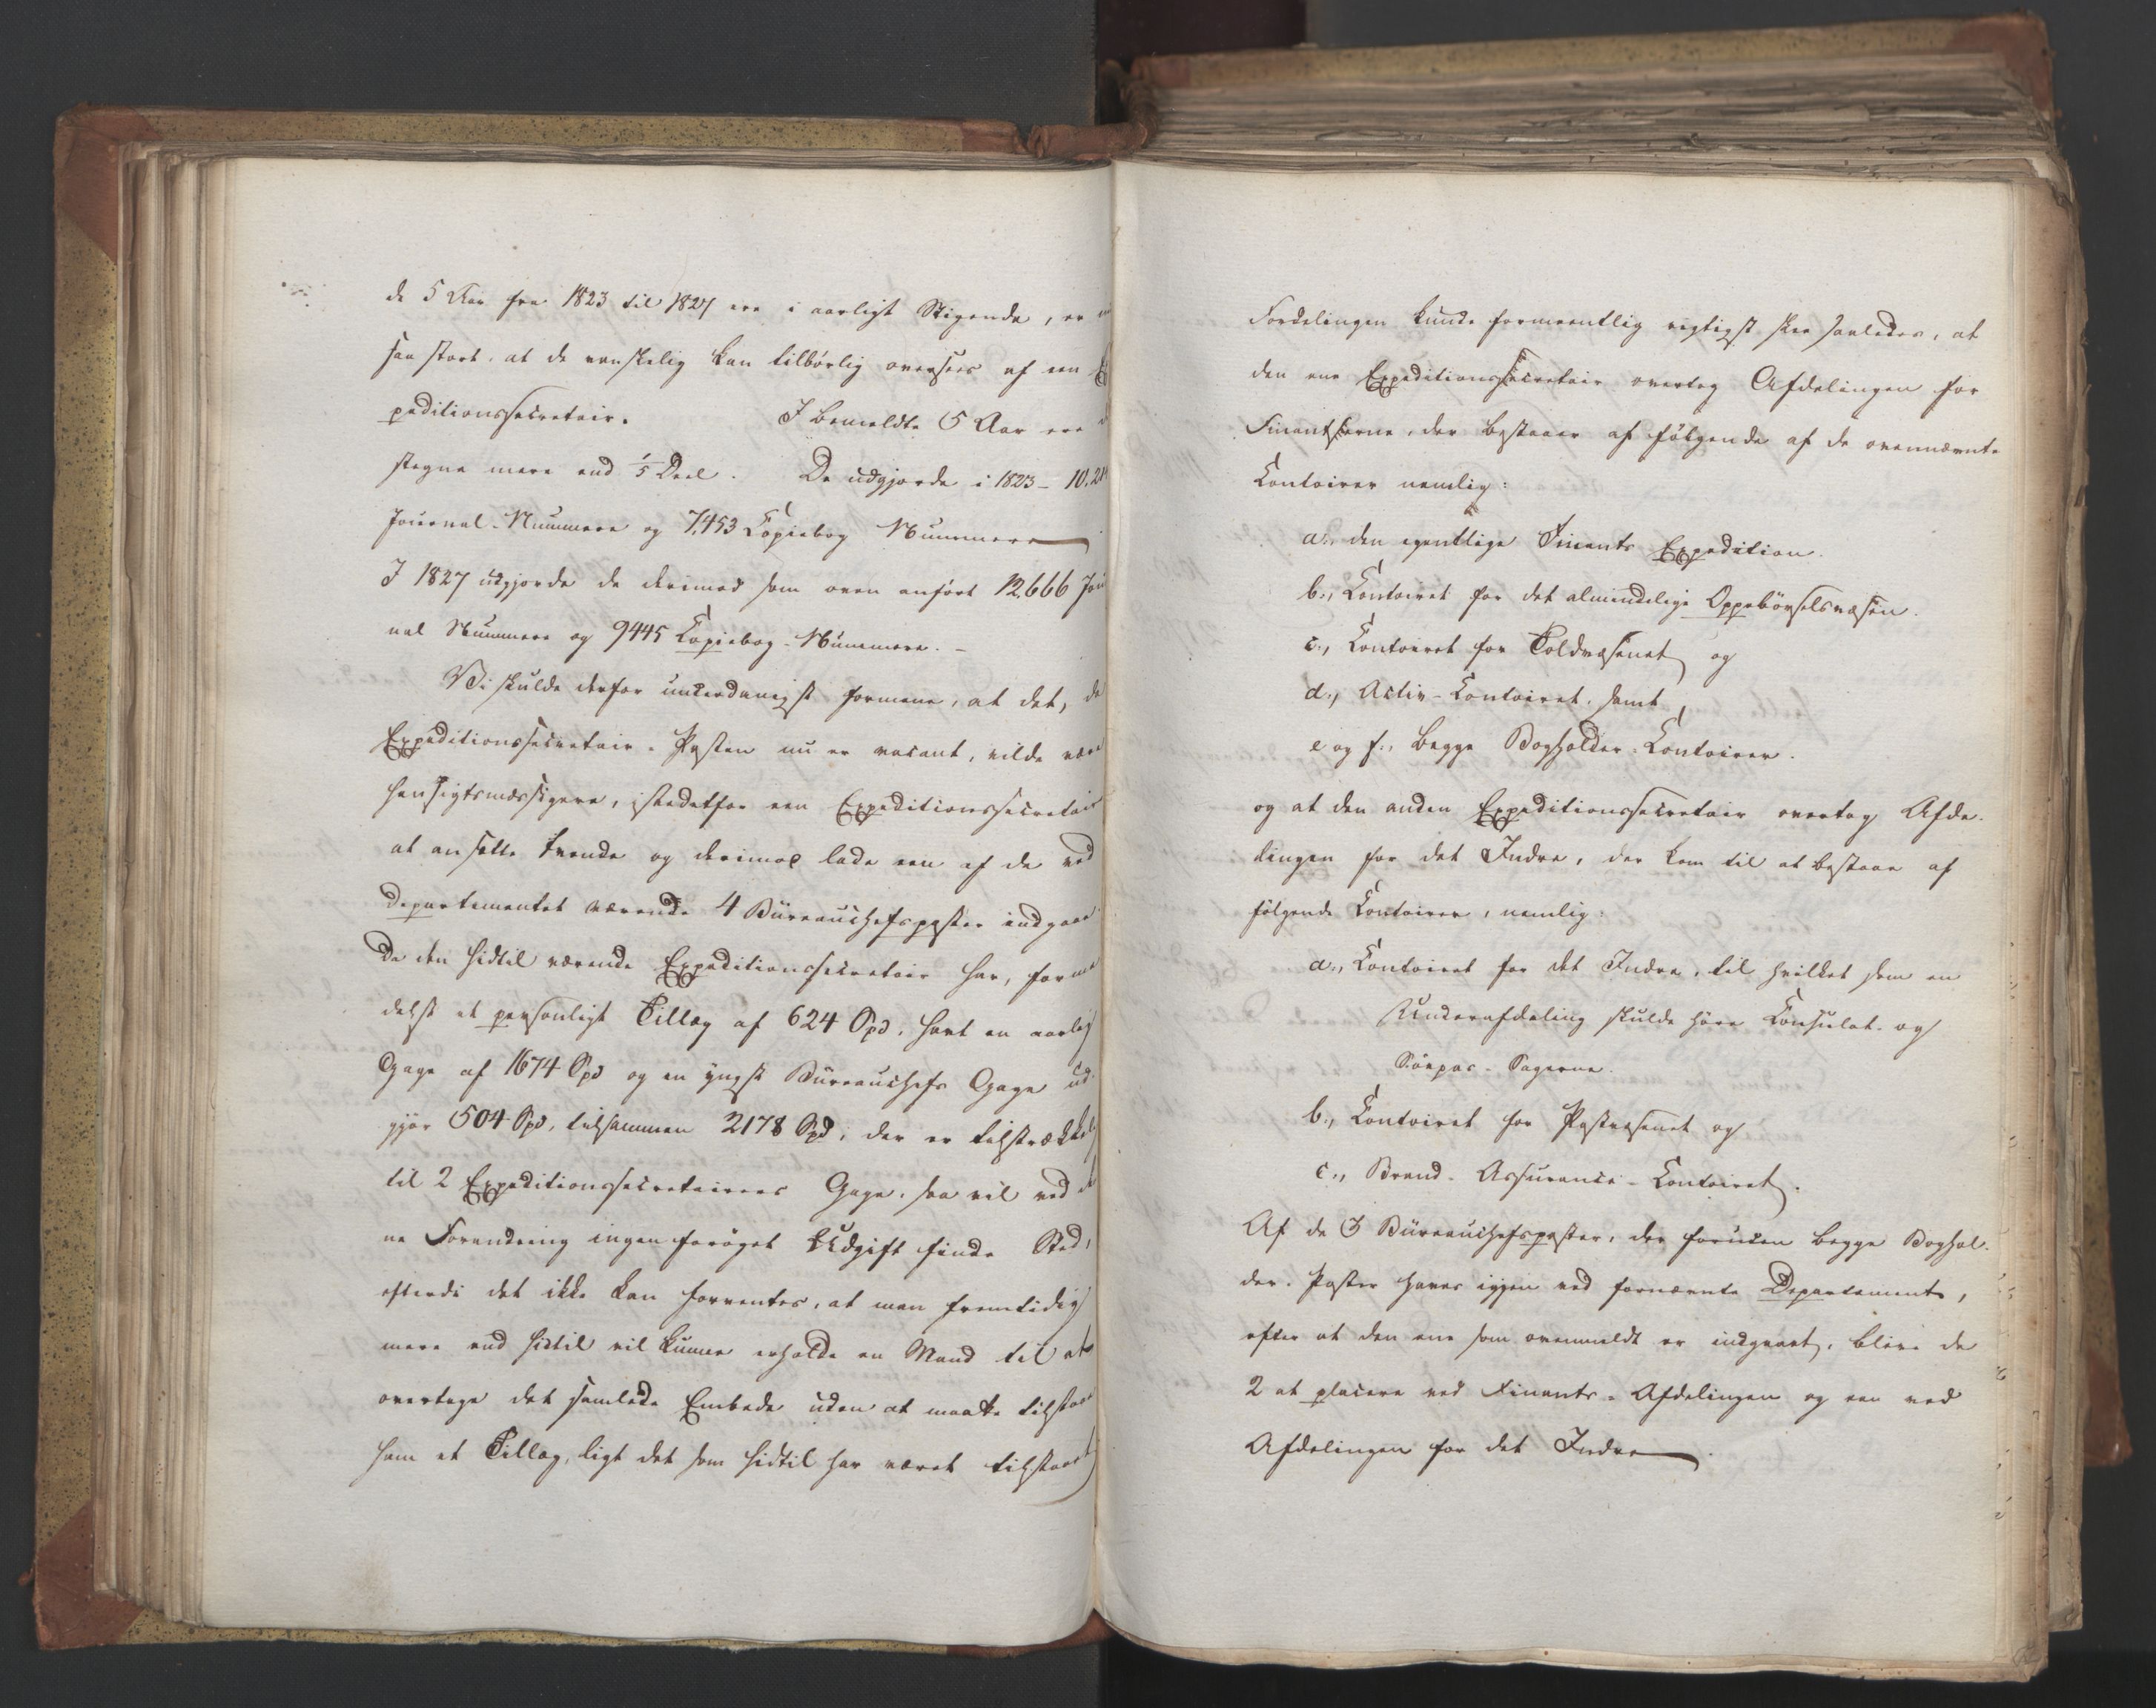 de 5 Aar fra 1823 til 1827 ere i aarligt Stigende, er
saa stort, at de vanskelig kan tilbørlig oversees af een Ex
peditionssecretair. I bemeldte 5 Aar ere
stegne mere end 1/5 Deel. De udgjorde i 1823 - 10.21
Journal-Nummere og 7,453 Copiebog Nummere
I 1827 udgjorde de derimod som oven anført 12,666 Jour
nal Nummere og 9445 Copiebog-Nummere. -
Vi skulde derfor underdanigst formene, at det, da
Expeditionssecretair-Posten nu er vacant, vilde være
hensigtsmæssigere, istedetfor een Expeditionssecretair
at ansætte tvende og derimod lade een af de ved
Departementet værende 4 Büreauchefsposter indgaae
Da den hidtil værende Expeditionssecretair har, forme
delst et personligt Tillæg af 624 Spd. havt en aarlig
Gage af 1674 Spd og en yngst Büreauchefs Gage ud-
gjør 504 Spd, tilsammen 2178 Spd, der er tilstrækkelig
til 2 Expeditionssecretairers Gage, saa vil ved den
ne Forandring ingen forøget Udgift finde Sted,
efterdi det ikke kan forventes, at man fremtidig
mere end hidtil vil kunne erholde en Mand til at
overtage det samlede Embede uden at maatte tilstaae
ham et Tillæg, ligt det som hidtil har været tilstaaet
Fordelingen kunde formeentlig rigtigst skee saaledes, at
den ene Expeditionssecretair overtog Afdelingen for
Finantserne, der bestaaer af følgende af de ovennævnte
Contoirer nemlig:
a., den egentlige Finants Expedition.
b., Contoiret for det almindelige Oppebørselsvæsen.
c., Contoiret for Toldvæsenet og
d., Activ-Contoiret, samt
e og f., begge Bogholder-Contoirer.
og at den anden Expeditionssecretair overtog Afde-
lingen for det Indre, der kom til at bestaae af
følgende Contoirer, nemlig:
a., Contoiret for det Indre, til hvilket som en
Underafdeling skulde høre Consulat- og
Søepas-Sagerne.
b., Contoiret for Postvæsenet og
c., Brand-Assurance-Contoiret.
Af de 3 Büreauchefsposter, der foruden begge Boghol-
der-Poster haves igjen ved fornævnte Departement,
efter at den ene som ovenmeldt er indgaaet, blive de
2 at placere ved Finants-Afdelingen og een ved
Afdelingen for det Indre